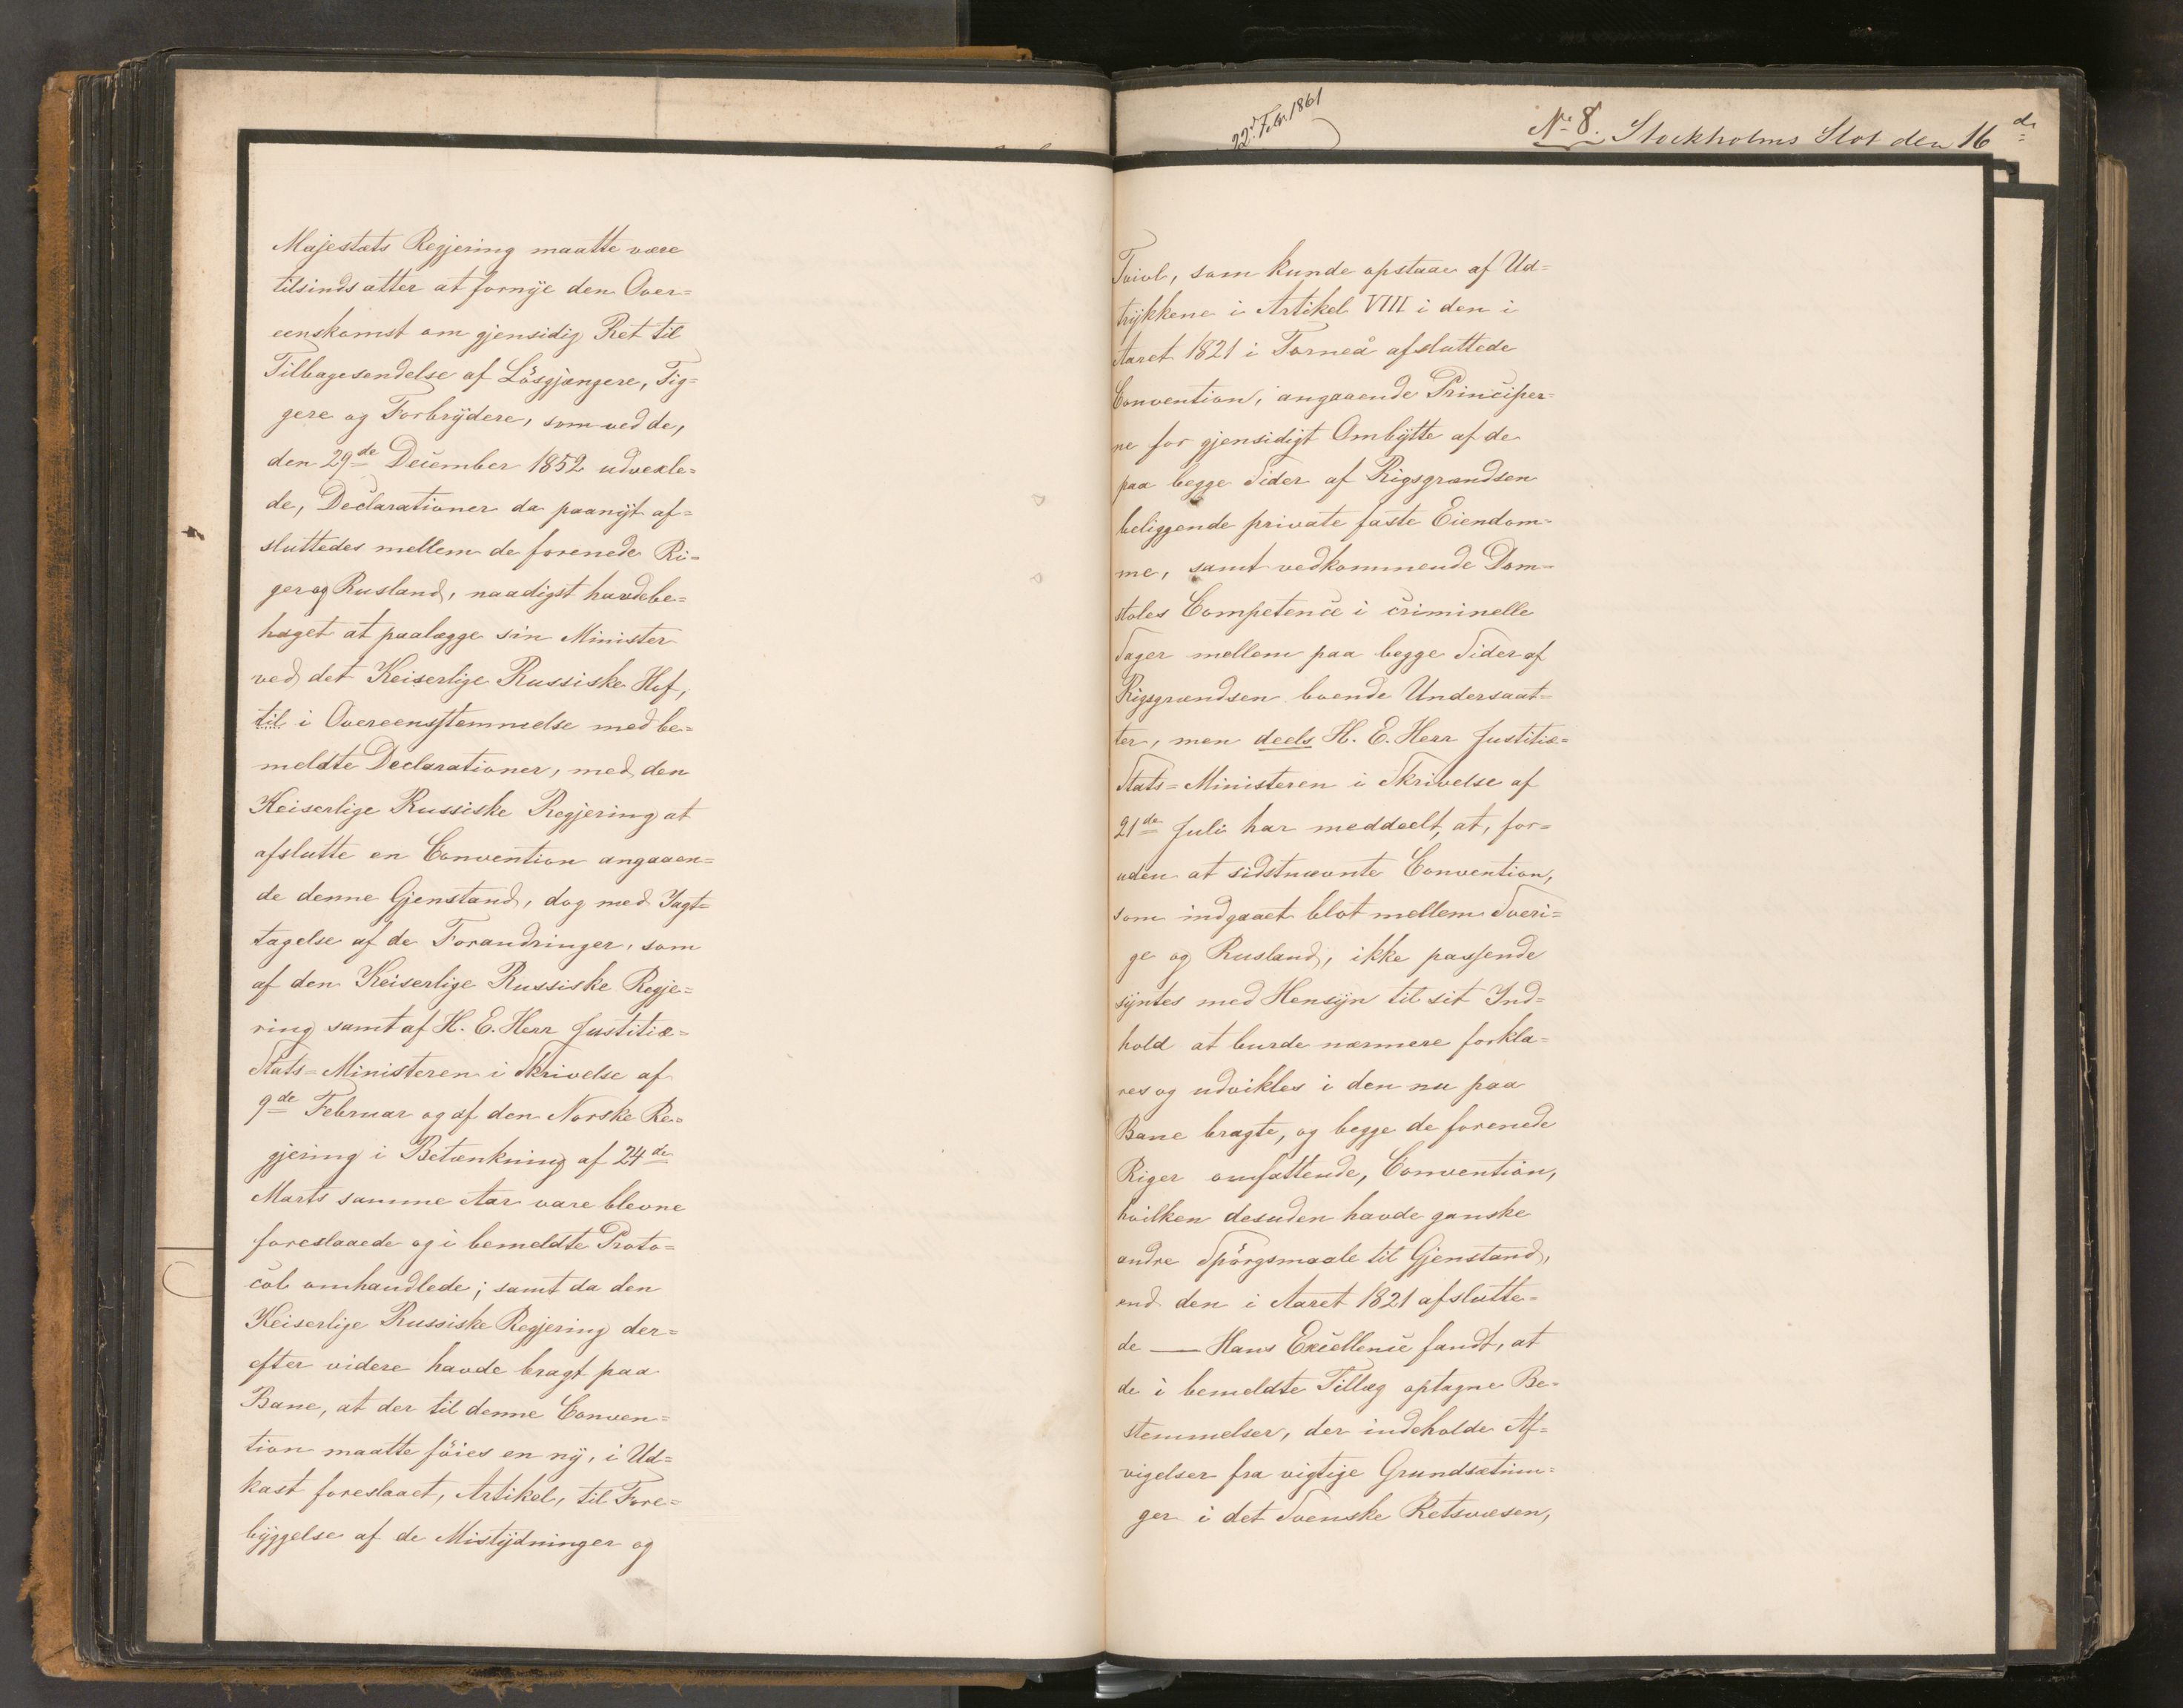 Majestæts Regjering maatte være
tilsinds atter at fornÿe den Over=
eenskomst om gjensidig Ret til
Tilbagesendelse af Lösgjængere, Tig=
gere og Forbrÿdere, som ved de,
den 29de December 1852 udvexle=
de, Declarationer da paanÿt af=
sluttedes mellem de forenede Ri=
ger og Rusland, naadigst havde be=
haget at paalægge sin Minister
ved det Keiserlige Russiske Hof,
til i Overeensstemmelse med be=
meldte Declarationer, med den
Keiserlige Russiske Regjering at
afslutte en Convention angaaen=
de denne Gjenstand, dog med Iagt=
tagelse af de Forandringer, som
af den Keiserlige Russiske Regje=
ring samt af H. E. Herr Justitiæ=
Stats=Ministeren i Skrivelse af
9de Februar og af den Norske Re=
gjering i Betænkning af 24de
Marts samme Aar vare blevne
foreslaaede og i bemeldte Proto=
col omhandlede; samt da den
Keiserlige Russiske Regjering der=
efter videre havde bragt paa
Bane, at der til denne Conven=
tion maatte föies en nÿ, i Ud=
kast foreslaaet, Artikel, til Fore=
bÿggelse af de Mistÿdninger og
22d Febr. 1861
No 8. Stockholms Slot den 16de
Tvivl, som kunde opstaae af Ud=
trÿkkene i Artikel VIII i den i
Aaret 1821 i Torneå afsluttede
Convention, angaaende Principer=
ne for gjensidigt Ombÿtte af de
paa begge Sider af Rigsgrændsen
beliggende private faste Eiendom=
me, samt vedkommende Dom=
stoles Competence i criminelle
Sager mellem paa begge Sider af
Rigsgrændsen boende Undersaat=
ter, men deels H. E. Herr Justitiæ=
Stats=Ministeren i Skrivelse af
21de Juli har meddeelt, at, for=
uden at sidstnævnte Convention,
som indgaaet blot mellem Sveri=
ge og Rusland, ikke passende
sÿntes med Hensÿn til sit Ind=
hold at burde nærmere forkla=
res og udvikles i den nu paa
Bane bragte, og begge de forenede
Riger omfattende, Convention,
hvilken desuden havde ganske
andre Spörgsmaale til Gjenstand,
end den i Aaret 1821 afslutte=
de — Hans Excellence fandt, at
de i bemeldte Tillæg optagne Be=
stemmelser, der indeholde Af=
vigelser fra vigtige Grundsætnin=
ger i det Svenske Retsvæsen,